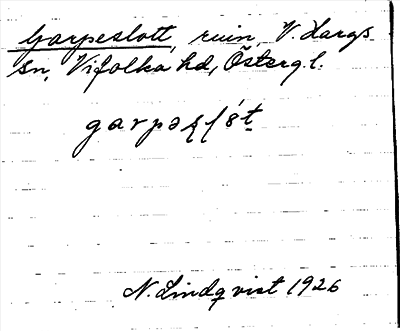 Garpeslott, ruin, V. Hargs
sn, Vifolka hd, Österg.l.
N. Lindqvist 1926